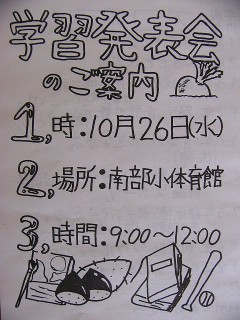 学習発表会
のご案内
1,時:10月26日(水)
2,場所:南部小体育館
3,時間:9:00～12:00